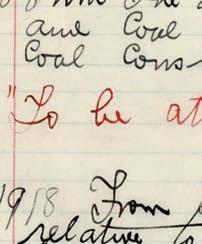 and Coal
Coal Cons-
"To be at
1918 From
relative to